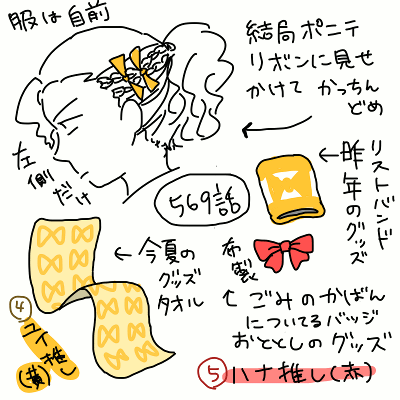 服は自前
結局ポニテ
リボンに見せ
かけて かっちん
どめ
左
側
だけ
569話
←リストバンド
昨年のグッズ
←今夏の
グッズ
タオル
布製
↑ごみのかばん
についてるバッジ
おととしのグッズ
④
ユイ推し
(黄)
⑤ハナ推し(赤)